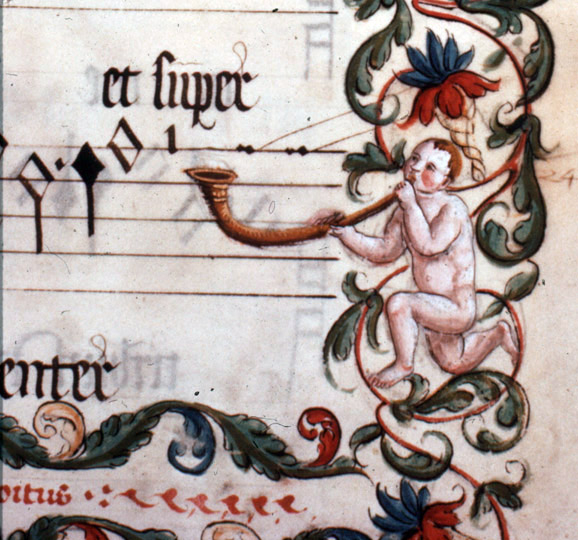 et super
enter
oitus